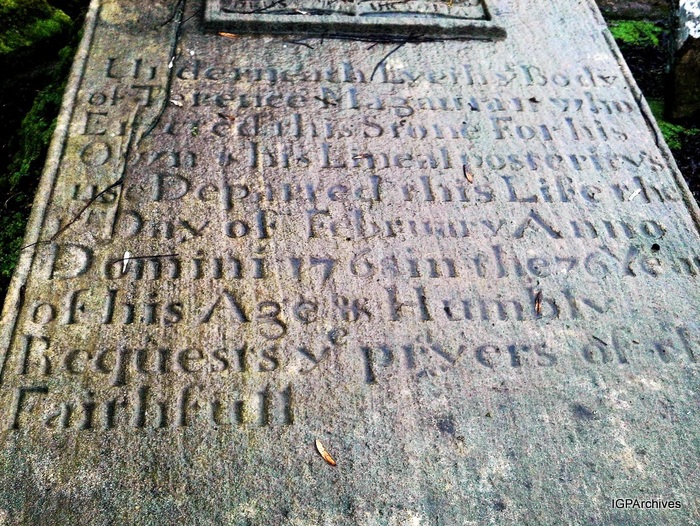 Underneath Lyeth ye Body
of Terence Magauran who
Erected this Stone For his
Own & his Lineal posteritys
use Departed this Life the
Day of February Anno
Domini 1768 in the 76 Year
of his Age & Humbly
Requests ye pryers of the
Faithfull
IGPArchives